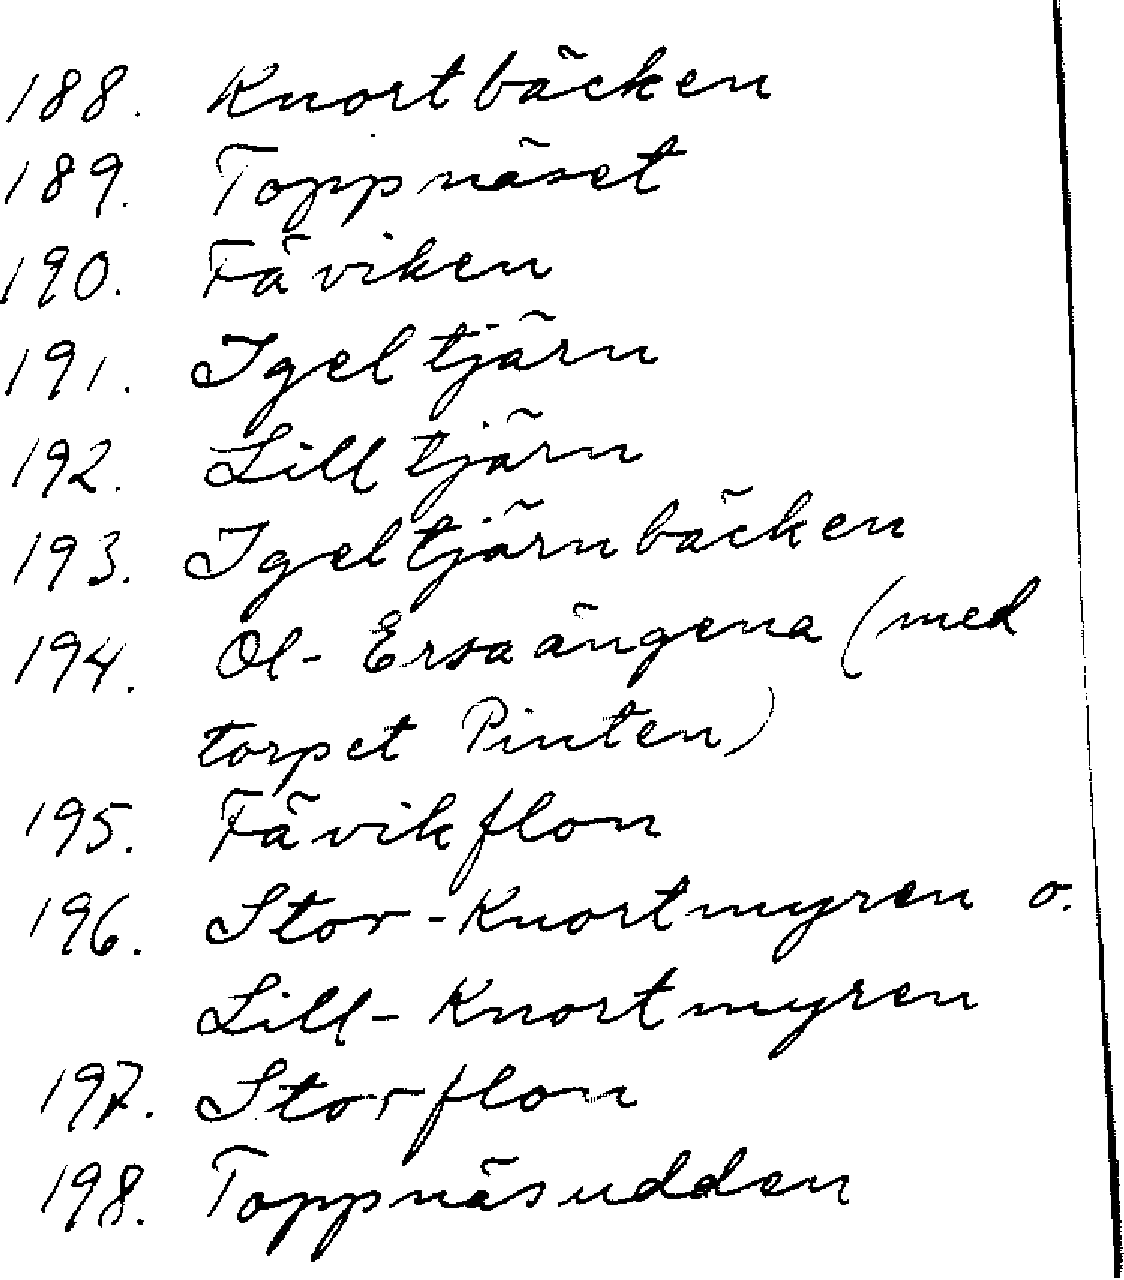 188. Knortbäcken
189. Toppnäset
190. Fäviken
191. Igeltjärn
192. Lilltjärn
193. Igeltjärnbäcken
194. Ol-Ersaängena (med
torpet Pinten)
195. Fävikflon
196. Stor-Knortmyren o.
Lill-Knortmyren
197. Storflon
198. Toppnäsudden